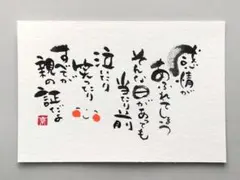 感情が
あふれてしまう
そんな日があっても
当たり前
泣いたり
笑ったり
すべてが
親の証だよ